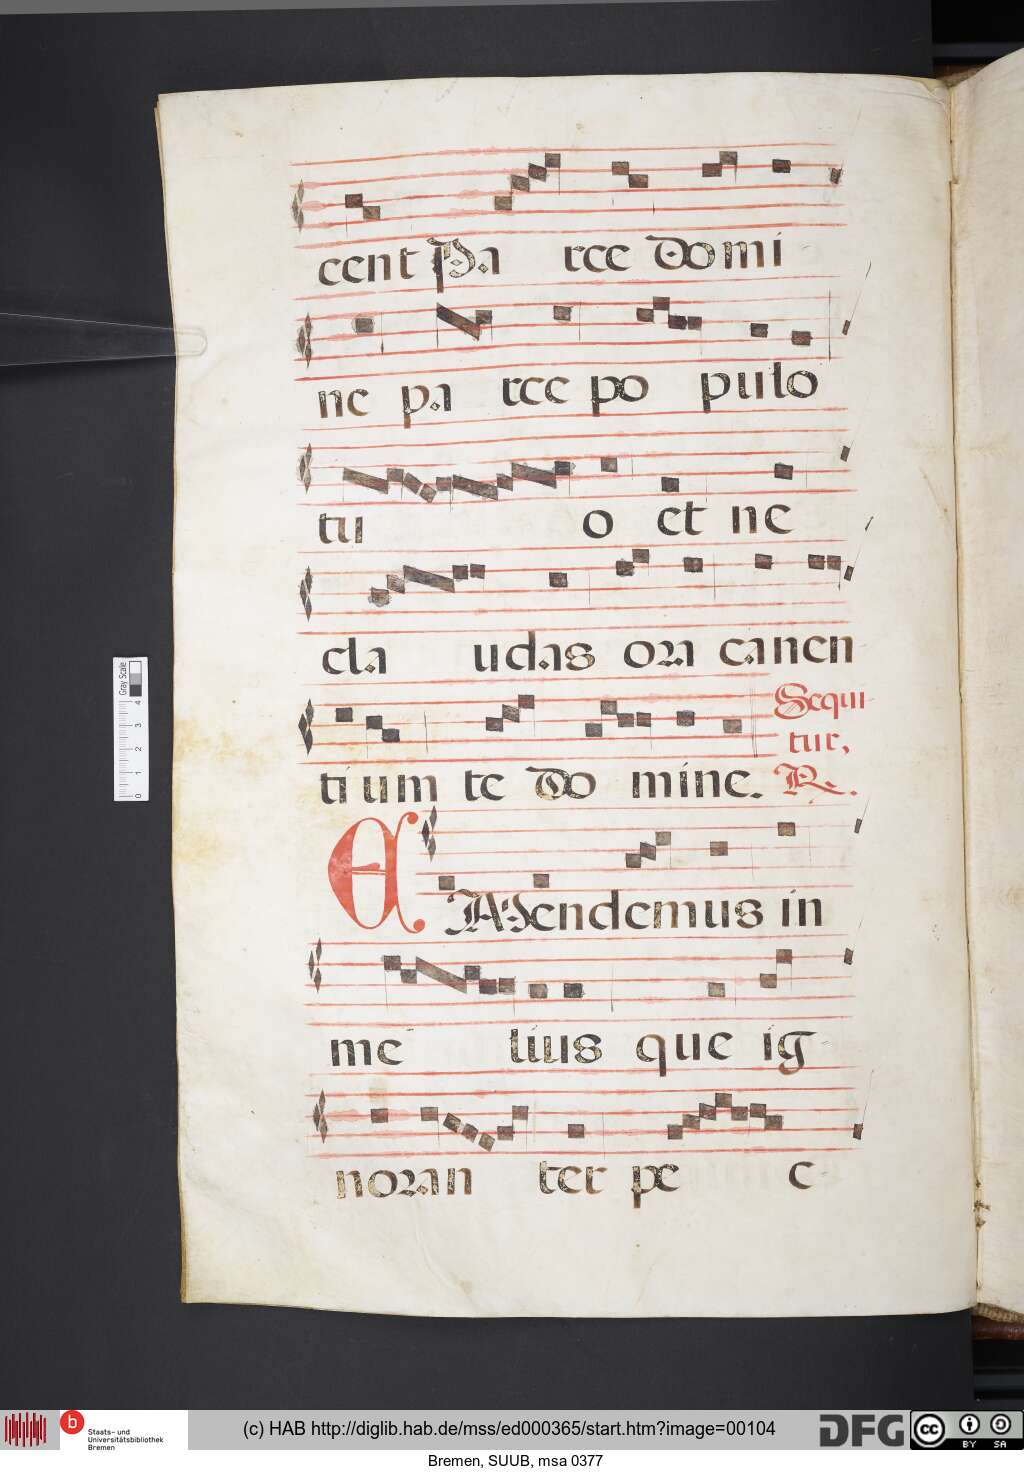 cent Pa rce Domi
ne pa rce po pulo
tu o et ne
cla udas ora canen
tium te Do mine. Sequi
tur,
R.
EMendemus in
me lius que ig
noran ter pe c
Gray Scale
4
3
2
1
0
b
Staats- und
Universitätsbibliothek
Bremen
(c) HAB http://diglib.hab.de/mss/ed000365/start.htm?image=00104
DFG
cc
BY SA
Bremen, SUUB, msa 0377